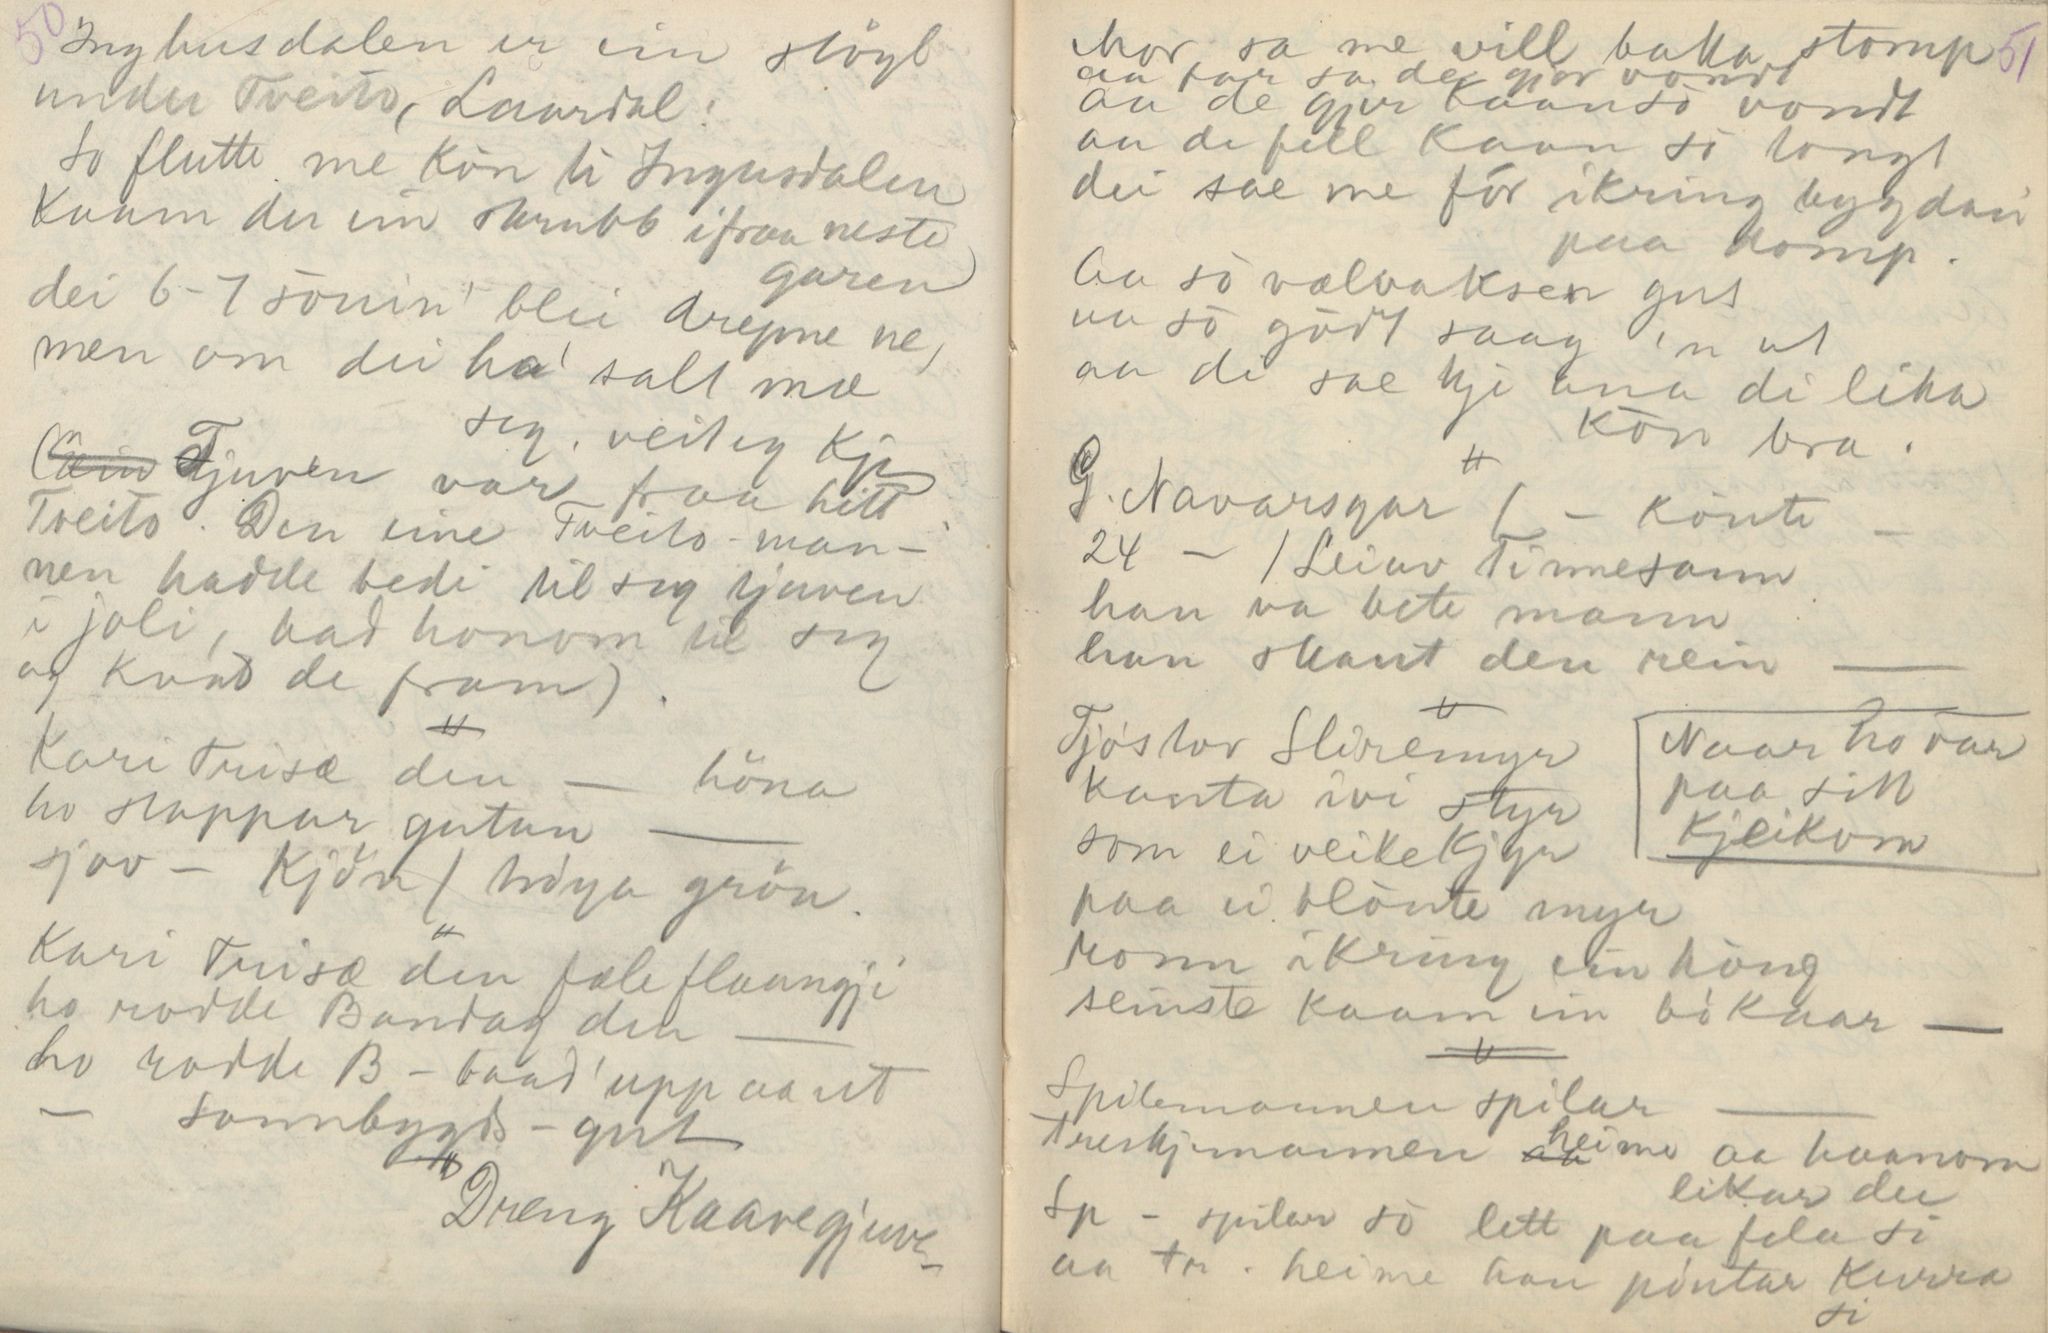 50
Inghusdalen er ein stögl
under Tveito, Laardal:
So flutte me kön ti Ingusdalen
kaam der ein skrubb ifraa neste
garen
dei 6-7 söuin' blei drepne ne,
men om dei ha' salt mæ
seg, veit eg kje
(Tjuven var fraa hitt
Tveito. Den eine Tveito-man-
nen hadde bedi til seg tjuven
i joli, bad honom til seg
og kvad de fram).
"
Kari Trisæ den — höna
ho stappar gutan —
sjov - kjön / höga grön.
"
Kari Trisæ den fæle flaangji
ho rodde Bandag den —
ho rodde B - baad' upp aa ut
— Sannbygds - gut
"
Dreng Kaavegjuv-
51
Mor sa me vill baka stomp
aa far sa de gjor vondt
aa de gjer kaan sö vondt
aa de fell kaan sö tongt
dei sae me för ikring bygdai
paa komp.
Aa sö vælvaksen gut
aa sö gödt saag 'n ut
aa di sae kje ana di lika
kön bra.
"
G. Navarsgar (- könte -
24 - / Leiuv Tinnesann
han va bete mann
han skaut den rein —
"
Tjöstov Sliremyr
kanta ivi styr
som ei veikekjyr
paa ei blönte myr
Naar ho var
paa sitt
kjeikom
ronn ikring ein höug
seinste kaam ein bökaar —
"
Spilemannen spilar —
Treskjemannen heime aa haanom
likar dei
Sp - spilar sö lett paa fela si
aa tr. heime han pöntar kurra
si